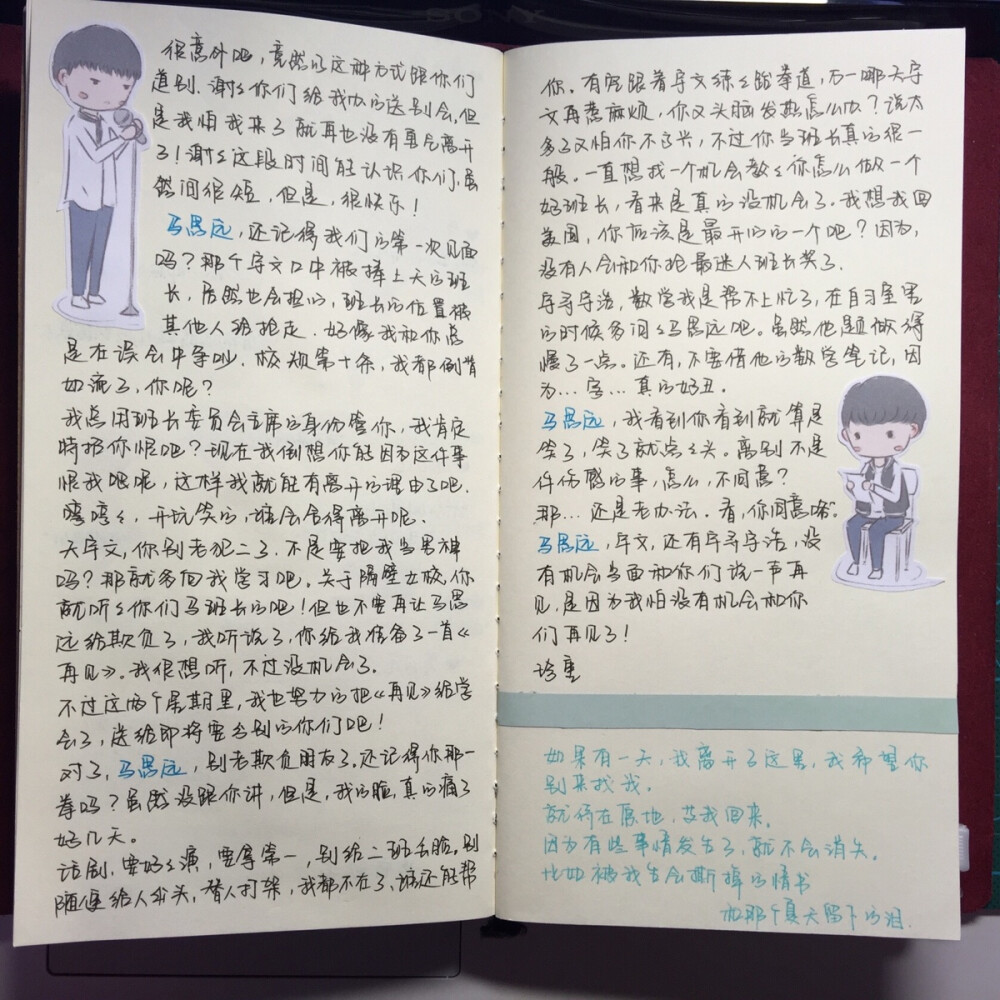 很意外吧，竟然以这种方式跟你们
道别，谢谢你们给我办的送别会，但
是我怕我来了就再也没有勇气离开
了！谢谢这段时间能认识你们，虽
然时间很短，但是，很快乐！
马思远，还记得我们的第一次见面
吗？那个宇文口中被捧上天的班
长，居然也会担心，班长的位置被
其他人给抢走．好像我和你总
是在误会中争吵．校规第十条，我都倒背
如流了，你呢？
我总用班长委员会主席的身份管你，我肯定
特招你恨吧？现在我倒想你能因为这件事
恨我吧呢，这样我就能有离开的理由了吧．
嘻嘻，开玩笑的，谁会舍得离开呢．
天宇文，你别老犯二了．不是要把我当男神
吗？那就多向我学习吧．关于隔壁女校，你
就听听你们马班长的吧！但也不要再让马思
远给欺负了，我听说了，你给我准备了一首《
再见》。我很想听，不过没机会了．
不过这两个星期里，我也努力的把《再见》给学
会了，送给即将要告别的你们吧！
对了，马思远，别老欺负朋友了．还记得你那一
拳吗？虽然没跟你讲，但是，我的脸，真的痛了
好几天。
话剧，要好好演，要拿第一，别给二班丢脸．别
随便给人出头，替人打架，我都不在了，谁还能帮
你．有空跟着宇文练练跆拳道，万一哪天宇
文再惹麻烦，你又头脑发热怎么办？说太
多了又怕你不高兴，不过你当班长真的很一
般。一直想找一个机会教教你怎么做一个
好班长，看来是真的没机会了．我想我回
美国，你应该是最开心的一个吧？因为，
没有人会和你抢最迷人班长奖了．
辛寻辛浩，数学我是帮不上忙了，在自习室里
的时候多问问马思远吧。虽然他题做得
慢了一点。还有，不要借他的数学笔记，因
为…字…真的好丑．
马思远，我看到你看到就算是
笑了，笑了就点点头。离别不是
件伤感的事，怎么，不同意？
那…还是老办法．看，你同意咯。
马思远，宇文，还有辛寻辛浩，没
有机会当面和你们说一声再
见，是因为我怕没有机会和你
们再见了！
珍重
如果有一天，我离开了这里，我希望你
别来找我．
就停在原地，等我回来．
因为有些事情发生了，就不会消失．
比如被我生会撕掉的情书
和那个夏天留下的泪．